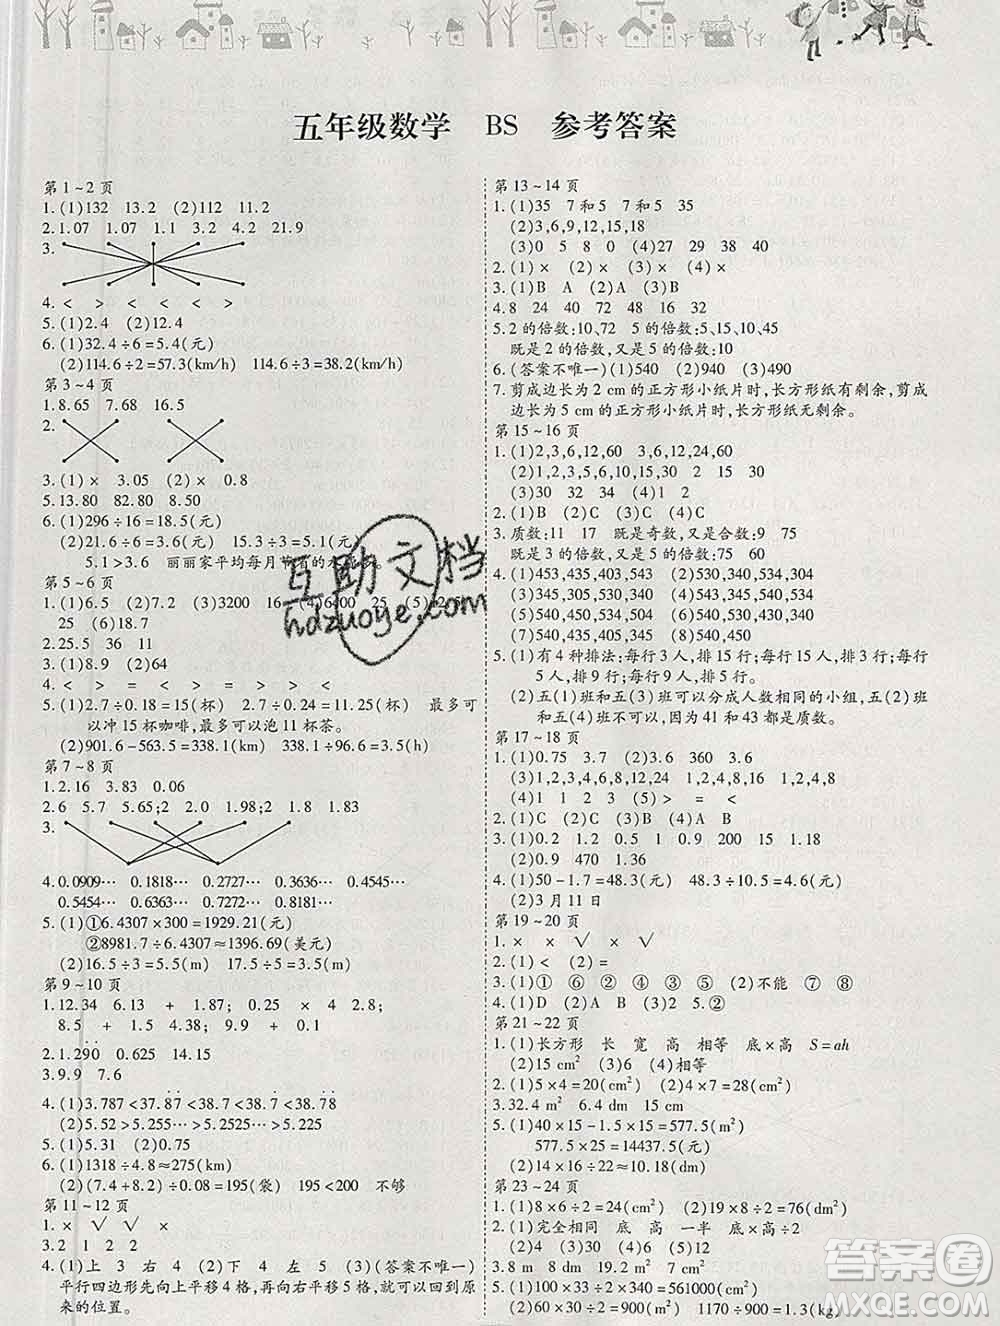 五年级数学 BS 参考答案
第1~2页
1.(1)132 13.2 (2)112 11.2
2.1.07 1.07 1.1 3.2 4.2 21.9
3.
4.< > < < < >
5.(1)2.4 (2)12.4
6.(1)32.4÷6=5.4(元)
(2)114.6÷2=57.3(km/h) 114.6÷3=38.2(km/h)
第3~4页
1.8.65 7.68 16.5
2.
3.(1)× 3.05 (2)× 0.8
5.13.80 82.80 8.50
6.(1)296÷16=18.5(元)
(2)21.6÷6=3.6(元) 15.3÷3=5.1(元)
5.1>3.6 丽丽家平均每月节省的水费多。
第5~6页
1.(1)6.5 (2)7.2 (3)3200 16 (4)6400 25 (5)
25 (6)18.7
2.25.5 36 11
3.(1)8.9 (2)64
4.< > = > < =
5.(1)2.7÷0.18=15(杯) 2.7÷0.24=11.25(杯) 最多可
以冲15杯咖啡,最多可以泡11杯茶。
(2)901.6-563.5=338.1(km) 338.1÷96.6=3.5(h)
第7~8页
1.2.16 3.83 0.06
2.6 5.7 5.65;2 2.0 1.98;2 1.8 1.83
3.
4.0.0909… 0.1818… 0.2727… 0.3636… 0.4545…
0.5454… 0.6363… 0.7272… 0.8181…
5.(1)①6.4307×300=1929.21(元)
②8981.7÷6.4307≈1396.69(美元)
(2)16.5÷3=5.5(m) 17.5÷5=3.5(m)
第9~10页
1.12.34 6.13 + 1.87; 0.25 × 4 2.8;
8.5 + 1.5 4.38; 9.9 ÷ 0.1
2.1.29̇0̇ 0.82 14.15
3.9.9 7.6
4.(1)3.787<37.8̇7̇<38.7<38.7̇<38.7̇8̇
(2)5.52>5.255…>5.2525…>5.225
5.(1)5.31 (2)0.75
6.(1)1318÷4.8≈275(km)
(2)(7.4+8.2)÷0.08=195(袋) 195<200 不够
第11~12页
1.× √ √ ×
3.2 1 2 2
4.(1)上 3 右 4 (2)下 4 左 5 (3)(答案不唯一)
平行四边形先向上平移4格,再向右平移5格,就可以回到原
来的位置。
第13~14页
1.(1)35 7和5 7和5 35
(2)3,6,9,12,15,18
(3)0 5 8 0 (4)27 29 38 40
2.(1)× (2)× (3)× (4)×
3.(1)B (2)A (3)B
4.8 24 40 72 48 16 32
5.2的倍数:10、72 5的倍数:5、15、10、45
既是2的倍数,又是5的倍数:10
6.(答案不唯一)(1)540 (2)940 (3)490
7.剪成边长为2 cm的正方形小纸片时,长方形纸有剩余,剪成
边长为5 cm的正方形小纸片时,长方形纸无剩余。
第15~16页
1.(1)2,3,6,12,60 3,6,12,24,60
(2)1,2,3,5,6,10,15,30 2 15 30
(3)30 32 34 (4)1 2
2.(1)B (2)C (3)C
3.质数:11 17 既是奇数,又是合数:9 75
既是3的倍数,又是5的倍数:75 60
4.(1)453,435,345,543 (2)540,530,534,304
(3)345,530,540,435 (4)534,453,543,345
(5)540,450,534,504 (6)530,350,430,340
(7)540,450,435,345 (8)540,450
5.(1)有4种排法:每行3人,排15行;每行15人,排3行;
每行5人,排9行;每行9人,排5行。
(2)五(1)班和五(3)班可以分成人数相同的小组,五(2)班
和五(4)班不可以,因为41和43都是质数。
第17~18页
1.(1)0.75 3.7 (2)3.6 360 3.6
(3)1,2,3,4,6,8,12,24 1,2,4,8,16 1,2,4,8
(4)1 1 2 3 (5)> = <
2.(1)C (2)C (3)B (4)B
3.(1)0.2 1.2 0.5 1 0.9 200 15 1.18
(2)0.9 470 1.36
4.(1)50-1.7=48.3(元) 48.3÷10.5=4.6(元)
(2)3月11日
第19~20页
1.× × √ × √
2.(1)< (2)=
3.(1)① ⑥ ② ④ ③ ⑤ (2)不能 ⑦ ⑧
4.(1)D (2)A B 5.②
第21~22页
1.(1)长方形 长 宽 高 相等 底×高 S=ah
(2)15 cm² (3)6 (4)相等
2.(1)5×4=20(cm²) (2)4×7=28(cm²)
3.32.4 m² 6.4 dm 15 cm
5.(1)40×15-1.5×15=577.5(m²)
577.5×25=14437.5(元)
(2)14×16÷22≈10.18(dm)
第23~24页
1.(1)8×6÷2=24(cm²) (2)19×8÷2=76(dm²)
2.(1)完全相同 底 高 一半 底×高÷2
(2)6 (3)52 (4)6 6
3.8 m 8 dm 15 cm
5.(1)100×33÷2×340=561000(cm²)
(2)60×30÷2=900(m²) 1170÷900=1.3(kg)
互助文档
hdzuoye.com
答案圈
MXQE.COM